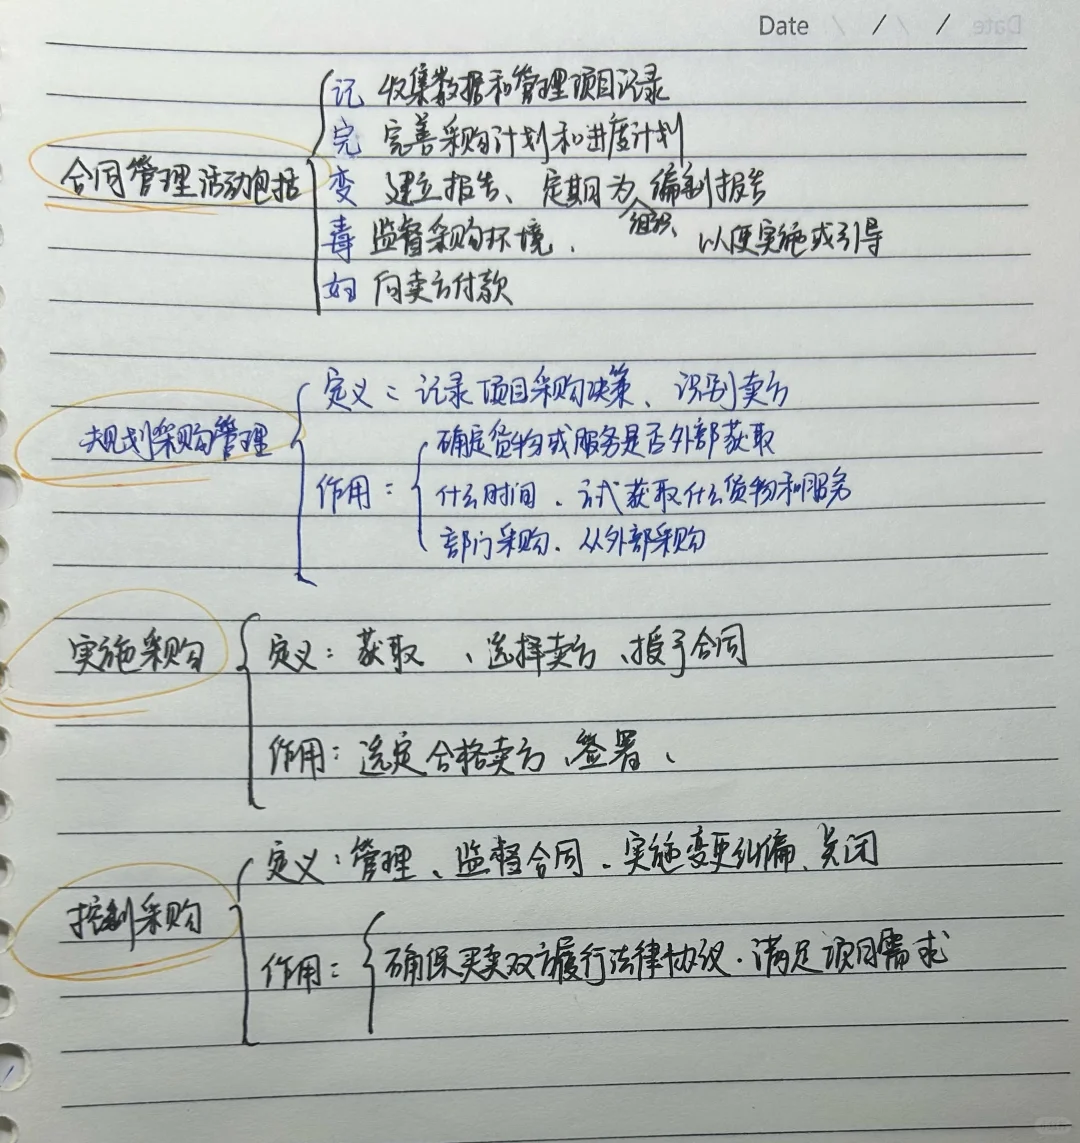 Date / / /
记 收集数据和管理项目记录
完 完善采购计划和进度计划
合同管理活动包括
变 建立报告、定期为组织编制报告
毒 监督采购环境、以便实施或引导
妇 向卖方付款
定义：记录项目采购决策、识别卖方
规划采购管理
确定货物或服务是否外部获取
作用：什么时间、方式获取什么货物和服务
部门采购、从外部采购
实施采购
定义：获取、选择卖方、授予合同
作用：选定合格卖方、签署、
定义：管理、监督合同、实施变更纠偏、关闭
控制采购
作用：确保买卖双方履行法律协议、满足项目需求